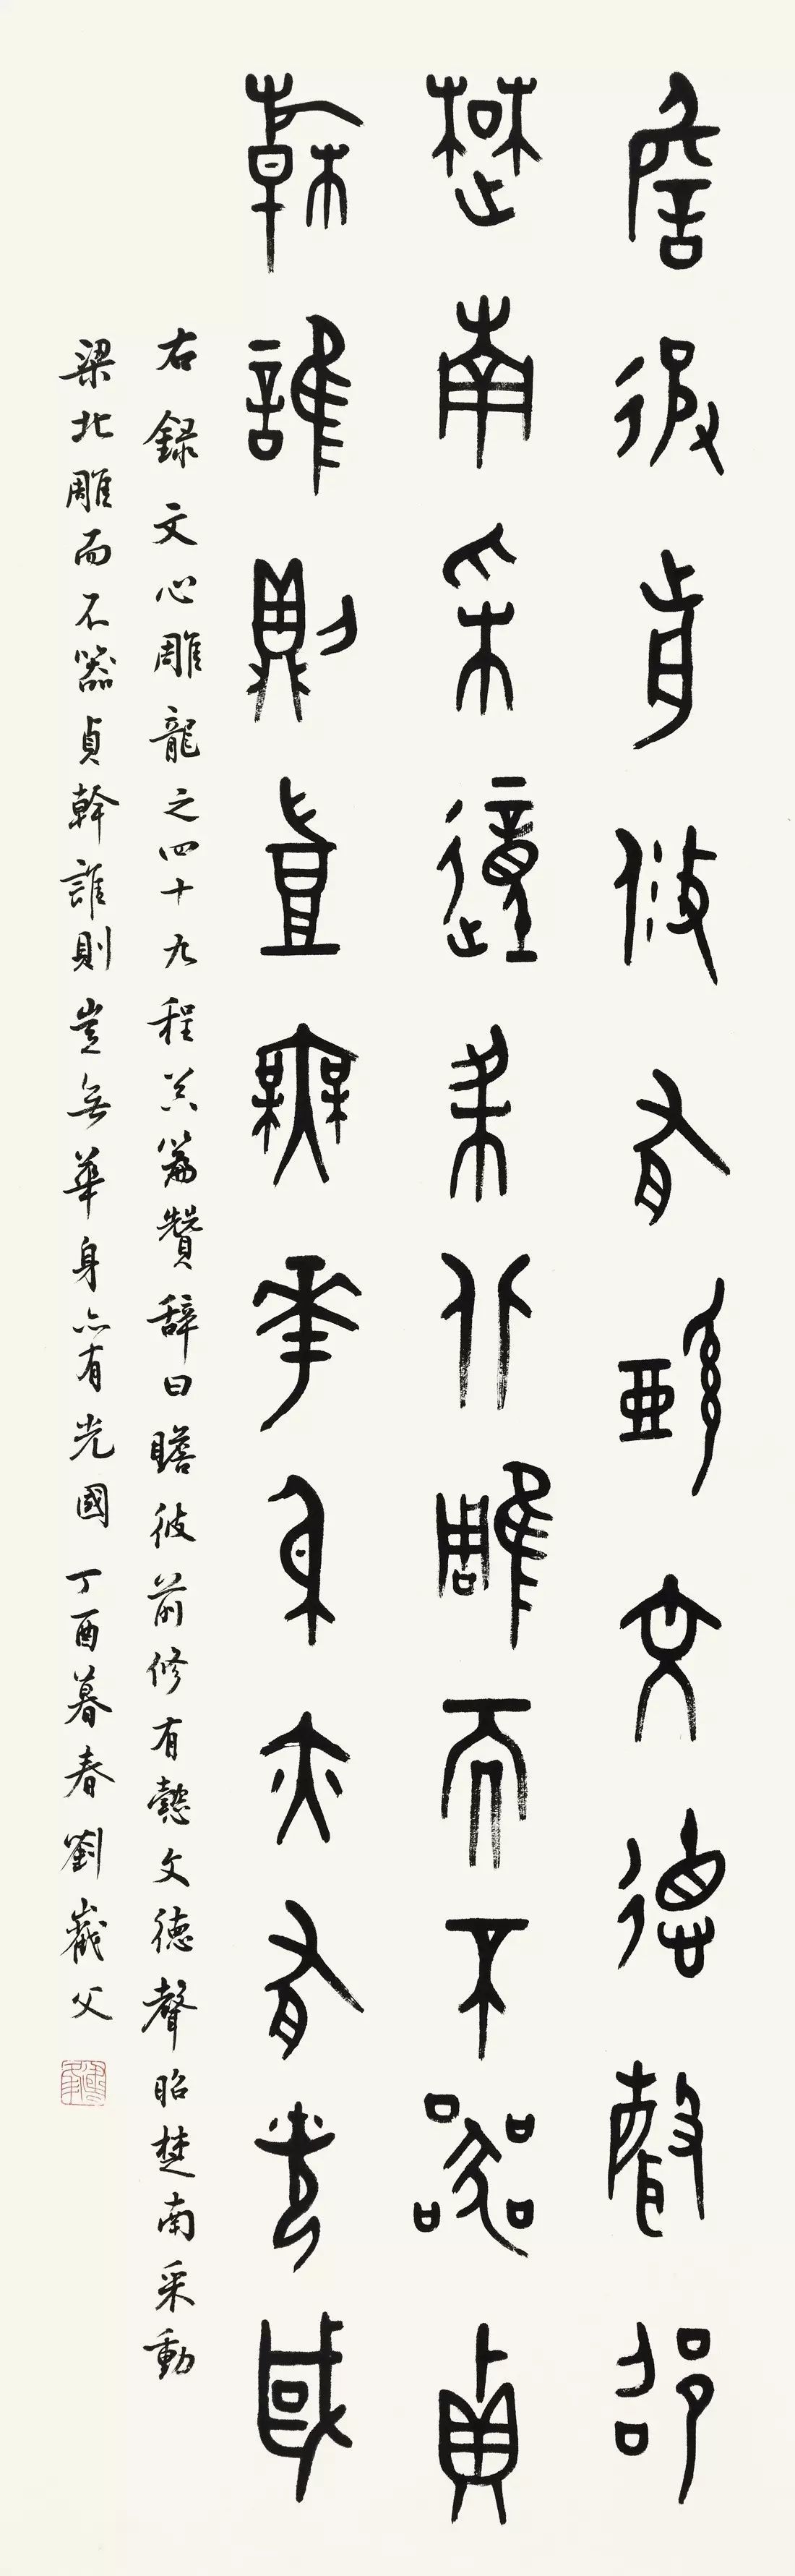 詹彼歬攸有懿文德聲卲
楚南采動梁北雕而不器貞
榦誰則豈無華身亦有光國
右錄文心雕龍之四十九程器篇贊辭曰瞻彼前修有懿文德聲昭楚南采動
梁北雕而不器貞幹誰則豈無華身亦有光國 丁酉暮春劉巖父